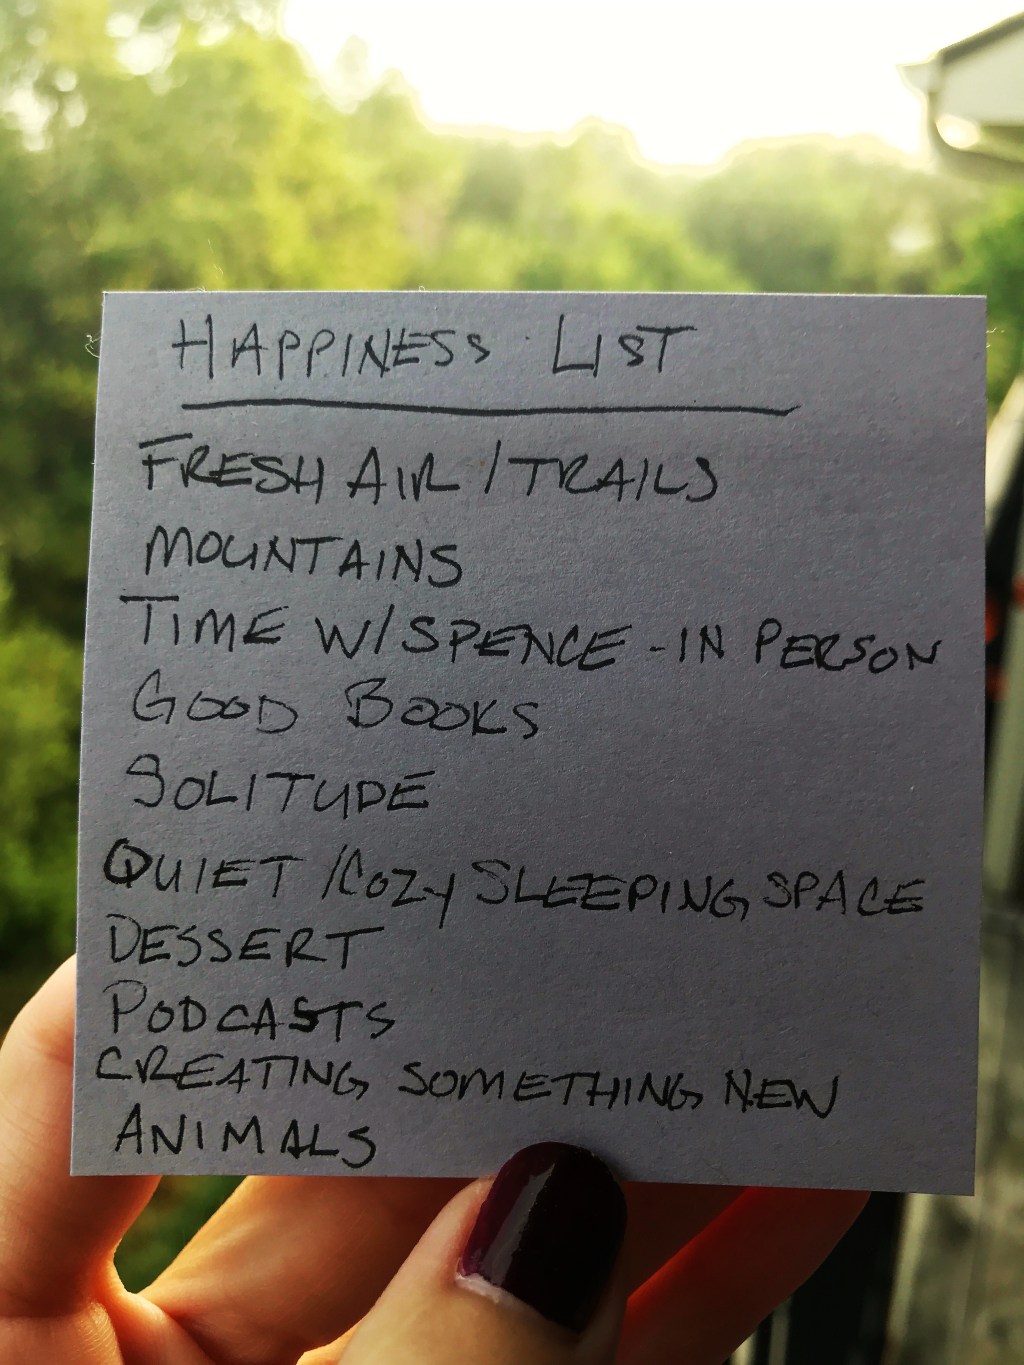 HAPPINESS LIST
FRESH AIR / TRAILS
MOUNTAINS
TIME W/ SPENCE - IN PERSON
GOOD BOOKS
SOLITUDE
QUIET / COZY SLEEPING SPACE
DESSERT
PODCASTS
CREATING SOMETHING NEW
ANIMALS